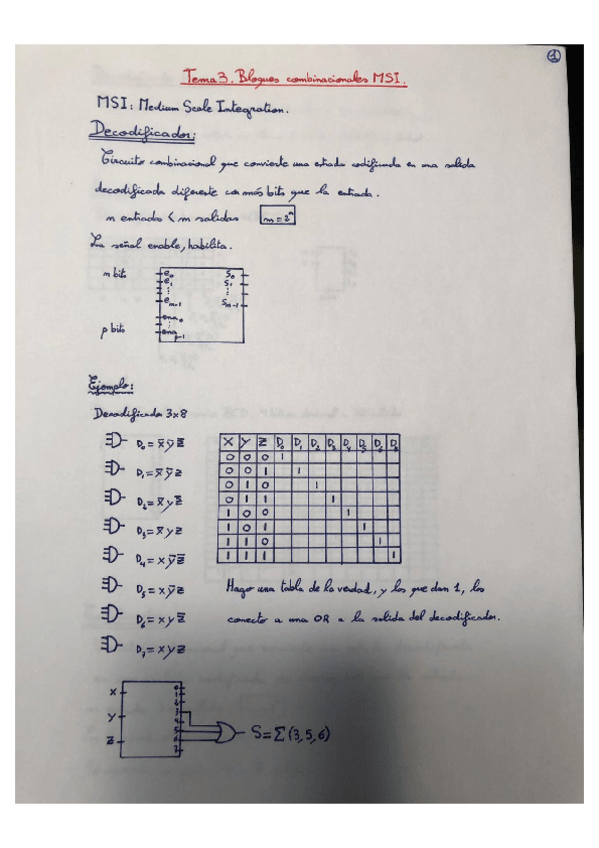 1
Tema 3. Bloques combinacionales MSI.
MSI: Medium Scale Integration.
Decodificador:
Circuito combinacional que convierte una entrada codificada en una salida
decodificada diferente con más bits que la entrada.
n entradas < m salidas m = 2ⁿ
La señal enable, habilita.
n bits e₀ S₀
e₁ S₁
eₙ₋₁ Sₘ₋₁
ena₀
p bits enaₚ₋₁
Ejemplo:
Decodificador 3x8
D₀ = x̄ ȳ z̄
D₁ = x̄ ȳ z
D₂ = x̄ y z̄
D₃ = x̄ y z
D₄ = x ȳ z̄
D₅ = x ȳ z
D₆ = x y z̄
D₇ = x y z
X Y Z D₀ D₁ D₂ D₃ D₄ D₅ D₆ D₈
0 0 0 1
0 0 1 1
0 1 0 1
0 1 1 1
1 0 0 1
1 0 1 1
1 1 0 1
1 1 1 1
Hago una tabla de la verdad, y los que dan 1, los
conecto a una OR a la salida del decodificador.
X 0
1
2
Y 3
4
5
Z 6
7
S = Σ(3,5,6)